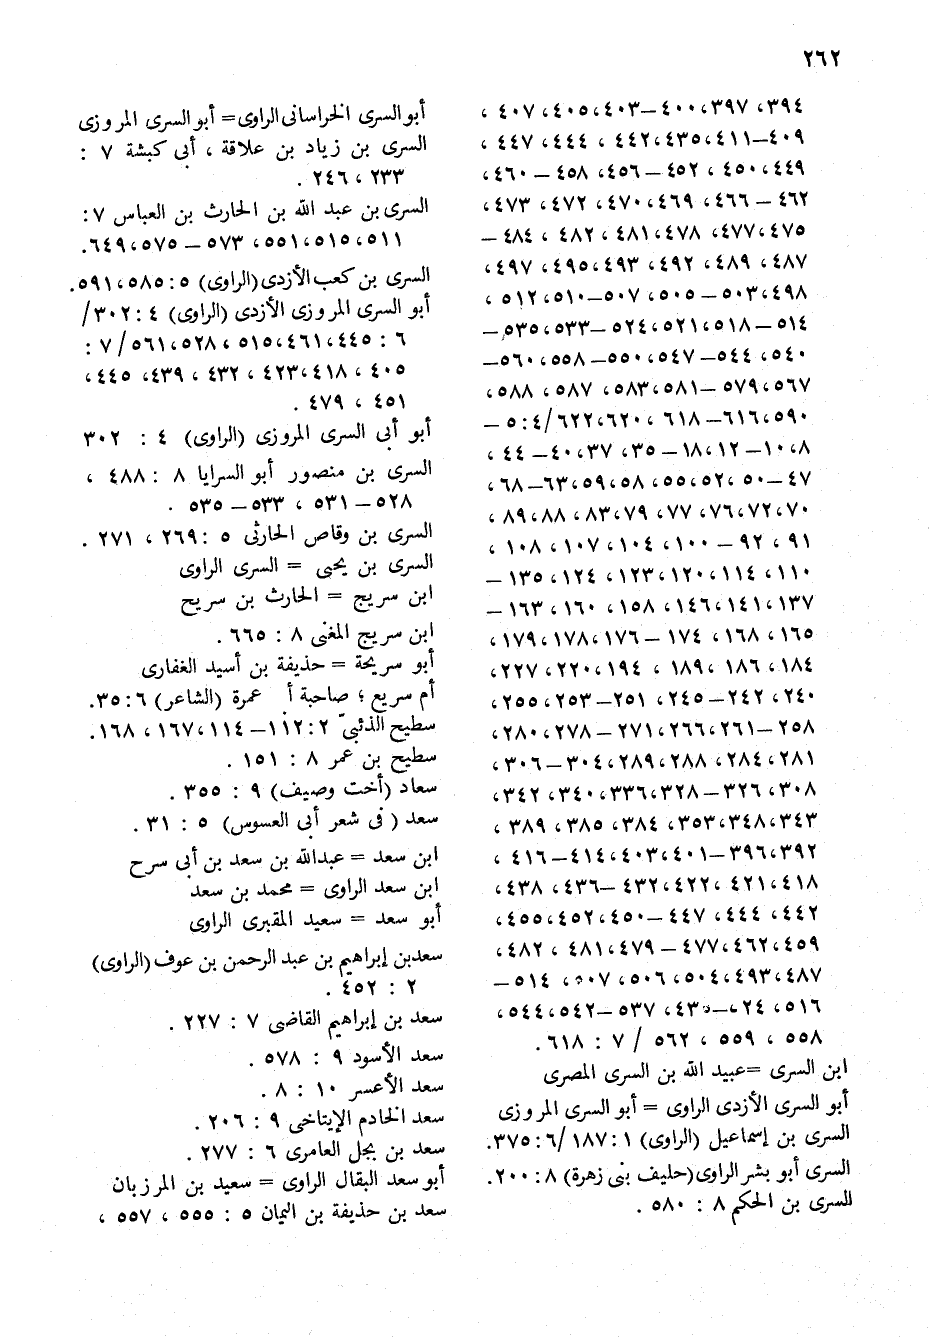 ٢٦٢
٣٩٤، ٣٩٧، ٤٠٠–٤٠٣، ٤٠٥، ٤٠٧ ،
٤٠٩–٤١١، ٤٣٥، ٤٤٢ ، ٤٤٤ ، ٤٤٧ ،
٤٤٩، ٤٥٠ ، ٤٥٢ –٤٥٦، ٤٥٨ – ٤٦٠،
٤٦٢ – ٤٦٦ ، ٤٦٩ ، ٤٧٠، ٤٧٢ ، ٤٧٣،
٤٧٥، ٤٧٧، ٤٧٨ ، ٤٨١، ٤٨٢ ، ٤٨٤ –
٤٨٧ ، ٤٨٩ ، ٤٩٢ ، ٤٩٣ ، ٤٩٥، ٤٩٧،
٤٩٨، ٥٠٣ – ٥٠٥ ، ٥٠٧ –٥١٠، ٥١٢ ،
٥١٤ –٥١٨، ٥٢١، ٥٢٤ –٥٣٣، ٥٣٥–
٥٤٠، ٥٤٤ –٥٤٧ ، ٥٥٠ –٥٥٨ ، ٥٦٠–
٥٦٧، ٥٧٩ –٥٨١، ٥٨٣، ٥٨٧ ، ٥٨٨،
٥٩٠، ٦١٦– ٦١٨ ، ٦٢٠، ٦٢٢/ ٤: ٥ –
٨، ١٠ –١٢، ١٨– ٣٥، ٣٧، ٤٠– ٤٤ ،
٤٧ –٥٠ ، ٥٢، ٥٥، ٥٨، ٥٩، ٦٣–٦٨،
٧٠، ٧٢، ٧٦، ٧٧ ، ٧٩، ٨٣، ٨٨، ٨٩ ،
٩١ ، ٩٢ – ١٠٠ ، ١٠٤ ، ١٠٧ ، ١٠٨ ،
١١٠، ١١٤ ، ١٢٠، ١٢٣، ١٢٤ ، ١٣٥ –
١٣٧، ١٤١، ١٤٦، ١٥٨ ، ١٦٠ ، ١٦٣ –
١٦٥ ، ١٦٨ ، ١٧٤ –١٧٦، ١٧٨، ١٧٩،
١٨٤ ، ١٨٦ ، ١٨٩ ، ١٩٤ ، ٢٢٠، ٢٢٧،
٢٤٠، ٢٤٢ –٢٤٥ ، ٢٥١ –٢٥٣، ٢٥٥،
٢٥٨ –٢٦١، ٢٦٦، ٢٧١ –٢٧٨ ، ٢٨٠،
٢٨١ ، ٢٨٤ ، ٢٨٨ ، ٢٨٩، ٣٠٤ –٣٠٦ ،
٣٠٨ ، ٣٢٦ –٣٢٨ ، ٣٣٦، ٣٤٠ ، ٣٤٢،
٣٤٣، ٣٤٨، ٣٥٣، ٣٨٤ ، ٣٨٥ ، ٣٨٩ ،
٣٩٢، ٣٩٦ –٤٠١، ٤٠٣، ٤١٤ –٤١٦ ،
٤١٨، ٤٢١ ، ٤٢٢، ٤٣٢ –٤٣٦، ٤٣٨،
٤٤٢ ، ٤٤٤ ، ٤٤٧ –٤٥٠، ٤٥٢ ، ٤٥٥،
٤٥٩، ٤٦٢، ٤٧٧ –٤٧٩، ٤٨١ ، ٤٨٢ ،
٤٨٧، ٤٩٣، ٥٠٤، ٥٠٦ ، ٥٠٧ ، ٥١٤ –
٥١٦ ، ٥٣٧ –٥٤٢، ٥٤٤،
٥٥٨ ، ٥٥٩ ، ٥٦٢ / ٧ : ٦١٨ .
ابن السرى =عبيد الله بن السرى المصرى
أبو السرى الأزدى الراوى = أبو السرى المروزى
السرى بن إسماعيل (الراوى) ١ : ١٨٧ /٦ : ٣٧٥.
السرى أبو بشر الراوى(حليف بنى زهرة) ٨ : ٢٠٠.
السرى بن الحكم ٨ : ٥٨٠ .
أبو السرى الخراسانى الراوى= أبو السرى المروزى
السرى بن زياد بن علاقة ، أبى كبشة ٧ :
٢٣٣ ، ٢٤٦ .
السرى بن عبد الله بن الحارث بن العباس ٧ :
٥١١، ٥١٥، ٥٥١، ٥٧٣ – ٥٧٥، ٦٤٩.
السرى بن كعب الأزدى (الراوى) ٥ : ٥٨٥، ٥٩١.
أبو السرى المروزى الأزدى (الراوى) ٤ : ٣٠٢/
٦ : ٤٤٥، ٤٦١، ٥١٥ ، ٥٢٨، ٥٦١/ ٧ :
٤٠٥ ، ٤١٨، ٤٢٣ ، ٤٣٢ ، ٤٣٩، ٤٤٥ ،
٤٥١ ، ٤٧٩ .
أبو أبى السرى المروزى (الراوى) ٤ : ٣٠٢
السرى بن منصور أبو السرايا ٨ : ٤٨٨ ،
٥٢٨ – ٥٣١ ، ٥٣٣ – ٥٣٥ .
السرى بن وقاص الحارثى ٥ : ٢٦٩ ، ٢٧١ .
السرى بن يحيى = السرى الراوى
ابن سريج = الحارث بن سريج
ابن سريج المغنى ٨ : ٦٦٥ .
أبو سريحة = حذيفة بن أسيد الغفارى
أم سريع ؛ صاحبة أ عمرة (الشاعر) ٦ : ٣٥.
سطيح الذئبىّ ٢ : ١١٢ – ١١٤ ، ١٦٧ ، ١٦٨.
سطيح بن عمر ٨ : ١٥١ .
سعاد (أخت وصيف) ٩ : ٣٥٥ .
سعد ( فى شعر أبى العسوس) ٥ : ٣١ .
ابن سعد = عبدالله بن سعد بن أبى سرح
ابن سعد الراوى = محمد بن سعد
أبو سعد = سعيد المقبرى الراوى
سعدبن إبراهيم بن عبد الرحمن بن عوف (الراوى)
٢ : ٤٥٢ .
سعد بن إبراهيم القاضى ٧ : ٢٢٧ .
سعد الأسود ٩ : ٥٧٨ .
سعد الأعسر ١٠ : ٨ .
سعد الخادم الإيتاخى ٩ : ٢٠٦ .
سعد بن بجل العامرى ٦ : ٢٧٧ .
أبو سعد البقال الراوى = سعيد بن المرزبان
سعد بن حذيفة بن اليمان ٥ : ٥٥٥ ، ٥٥٧ ،